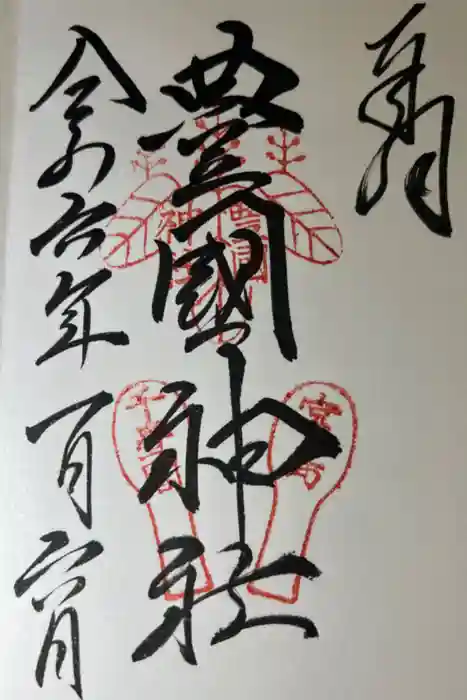 奉拝
豊國神社
令和六年一月六日
豊國
神社
京都